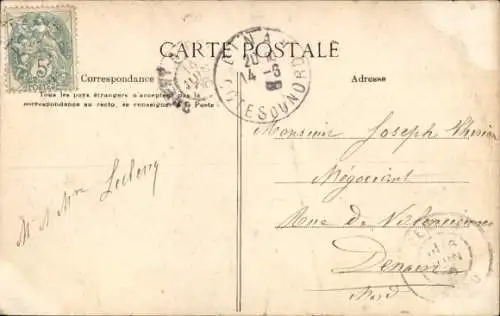 CARTE POSTALE
Correspondance
Adresse
Tous les pays étrangers n'acceptent pas la
correspondance au recto, se renseigner à la Poste
5
14 -6
DU NORD
Monsieur Joseph
Négociant
Rue de Valenciennes
Denain
Nord
M & Mme Leclercq